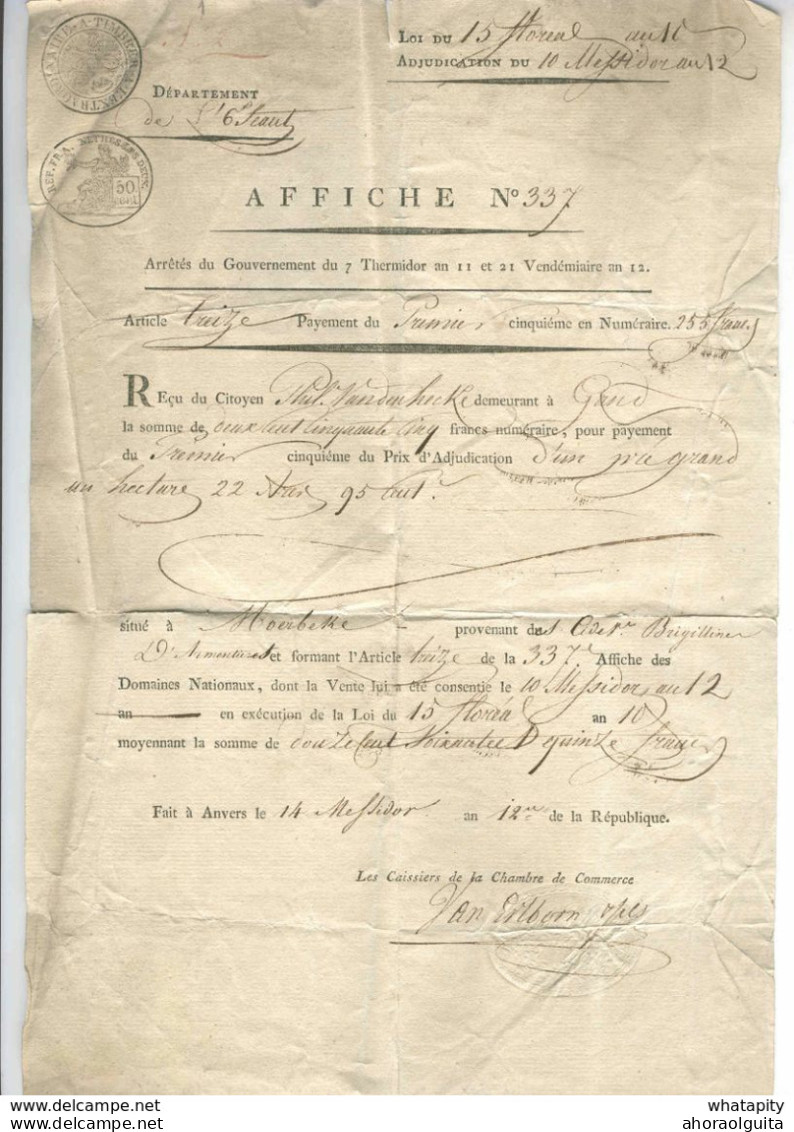 Loi du 15 floreal an 10
Adjudication du 10 Messidor an 12
Département
de l'Escaut
RÉP. FRA. NETHES LES DEUX
50
CENT.
AFFICHE N° 337
Arrêtés du Gouvernement du 7 Thermidor an 11 et 21 Vendémiaire an 12.
Article treize Payement du Premier cinquiéme en Numéraire. 255 francs
REçu du Citoyen Phil. Vandenhecke demeurant à Gand
la somme de deux cent cinquante cinq francs numéraire, pour payement
du Premier cinquiéme du Prix d'Adjudication d'un pre grand
un hectare 22 Ares 95 Cent.
situé à Moerbeke provenant des Brigittines
D'Armentieres et formant l'Article treize de la 337e Affiche des
Domaines Nationaux, dont la Vente lui a été consentie le 10 Messidor an 12
an en exécution de la Loi du 15 floréal an 10
moyennant la somme de douze cent soixante & quinze francs
Fait à Anvers le 14 Messidor an 12me de la République.
Les Caissiers de la Chambre de Commerce
Van Ertborn
delcampe.net
whatapity
delcampe.net
ahoraolguita